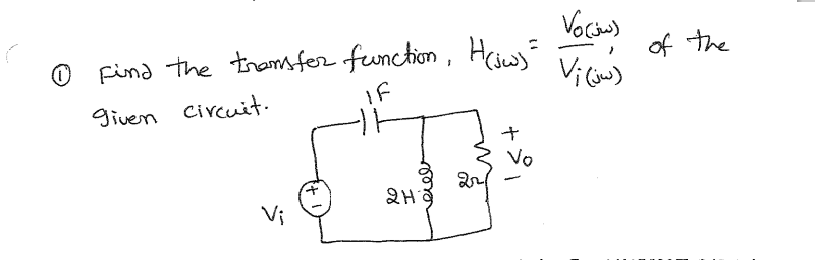 ① Find the transfer function, H(jω) = Vo(jω) / Vi(jω), of the
given circuit.
1F
+
Vo
-
2H
2Ω
+
-
Vi